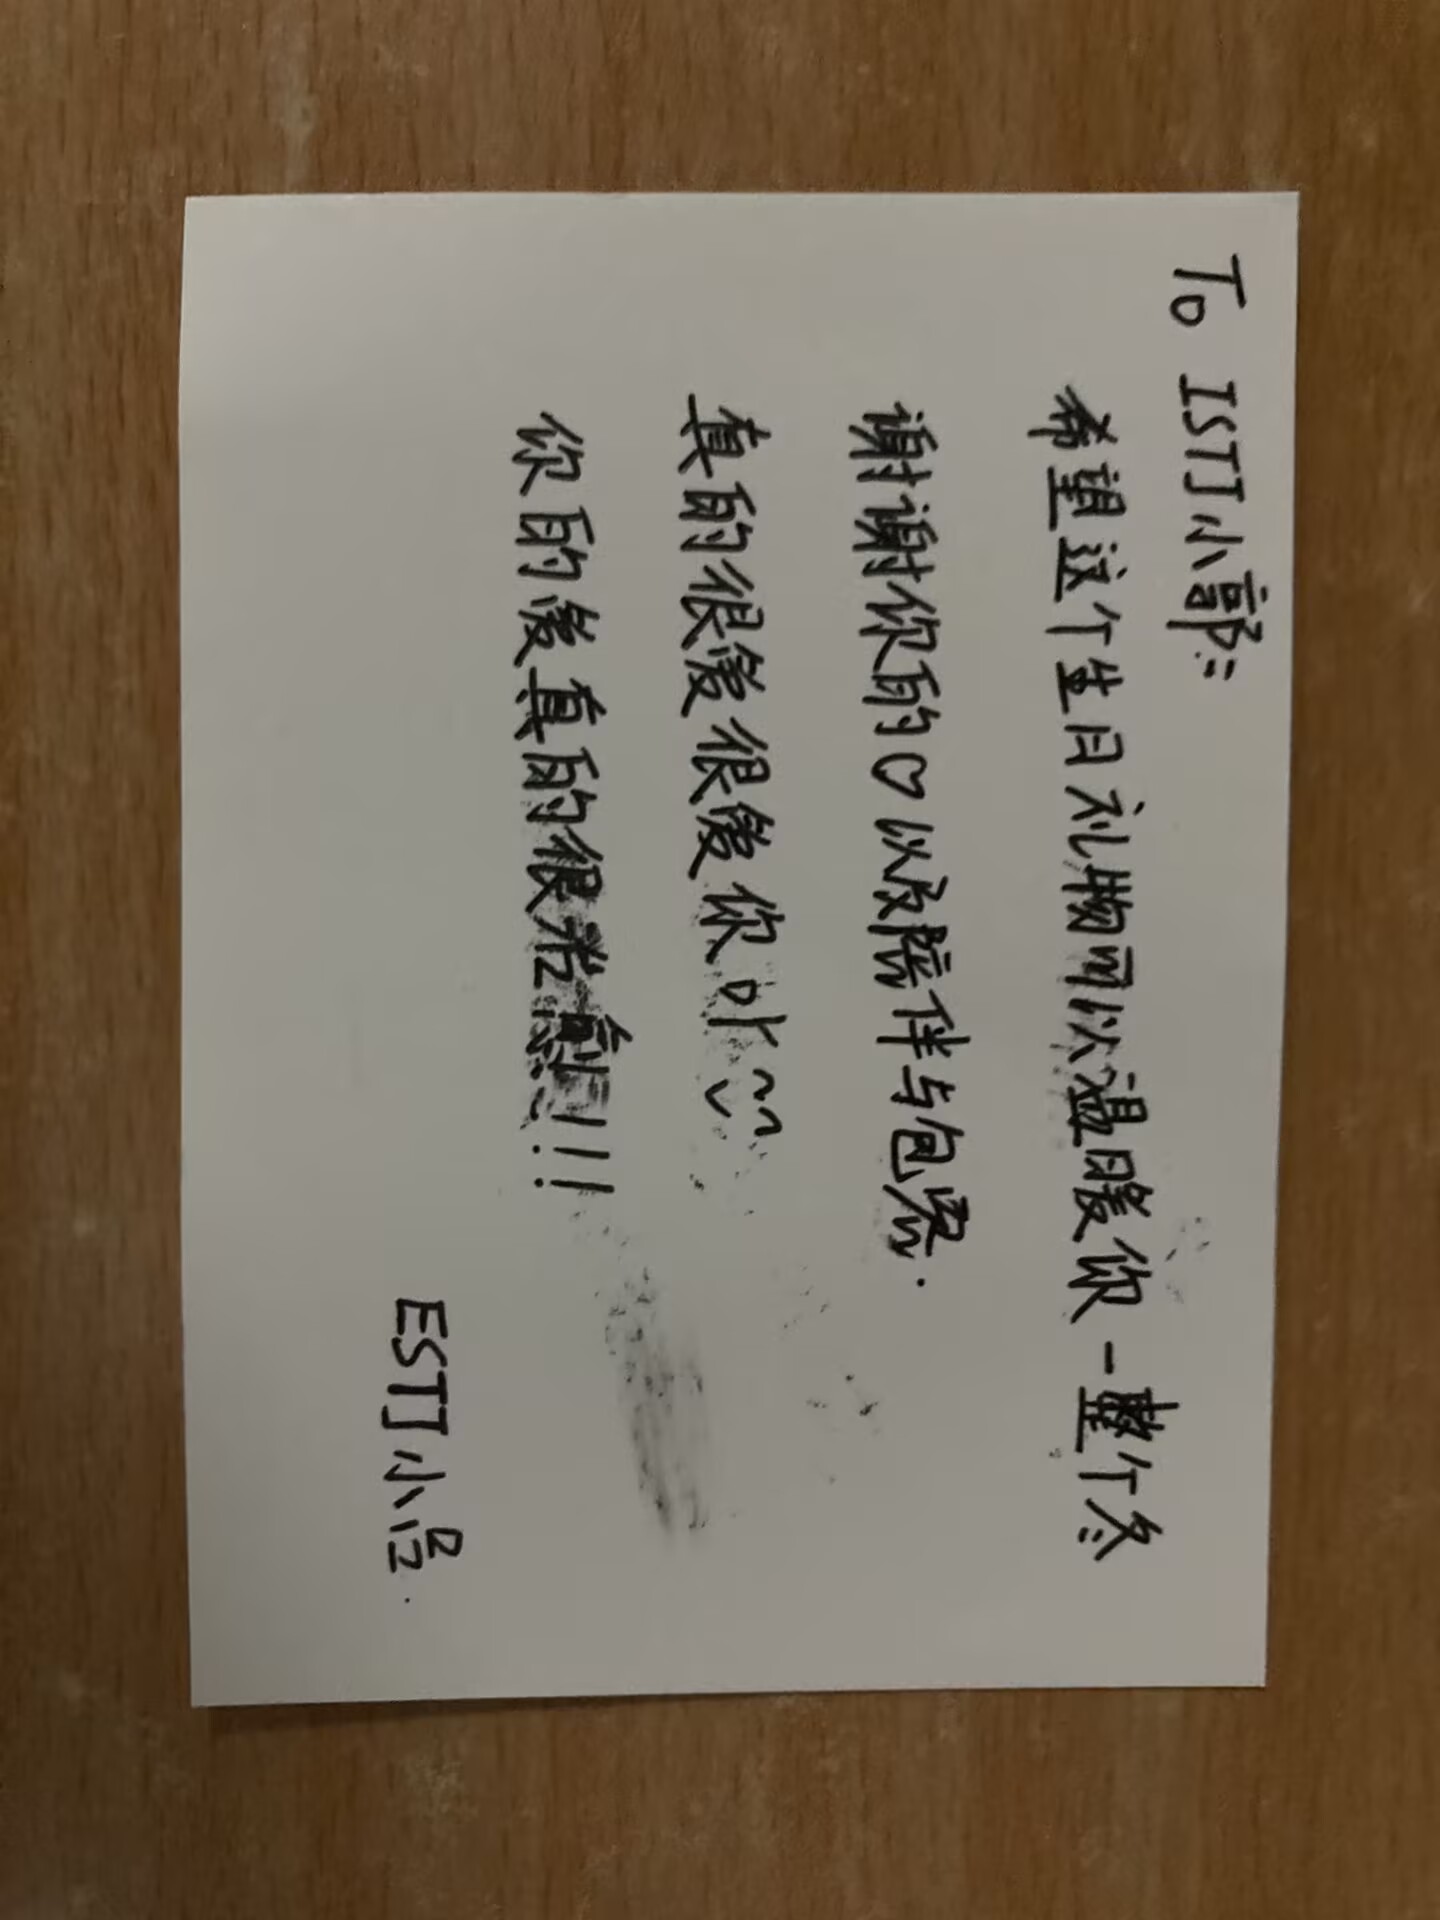 To ISTJ小郭:
希望这个生日礼物可以温暖你一整个冬
谢谢你的♡以及陪伴与包容.
真的很爱很爱你吖
你的爱真的很治愈!!!
ESTJ小吕.